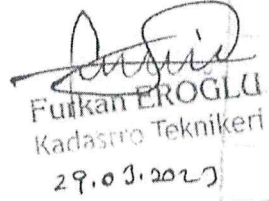 Furkan EROĞLU
Kadastro Teknikeri
29.03.2023